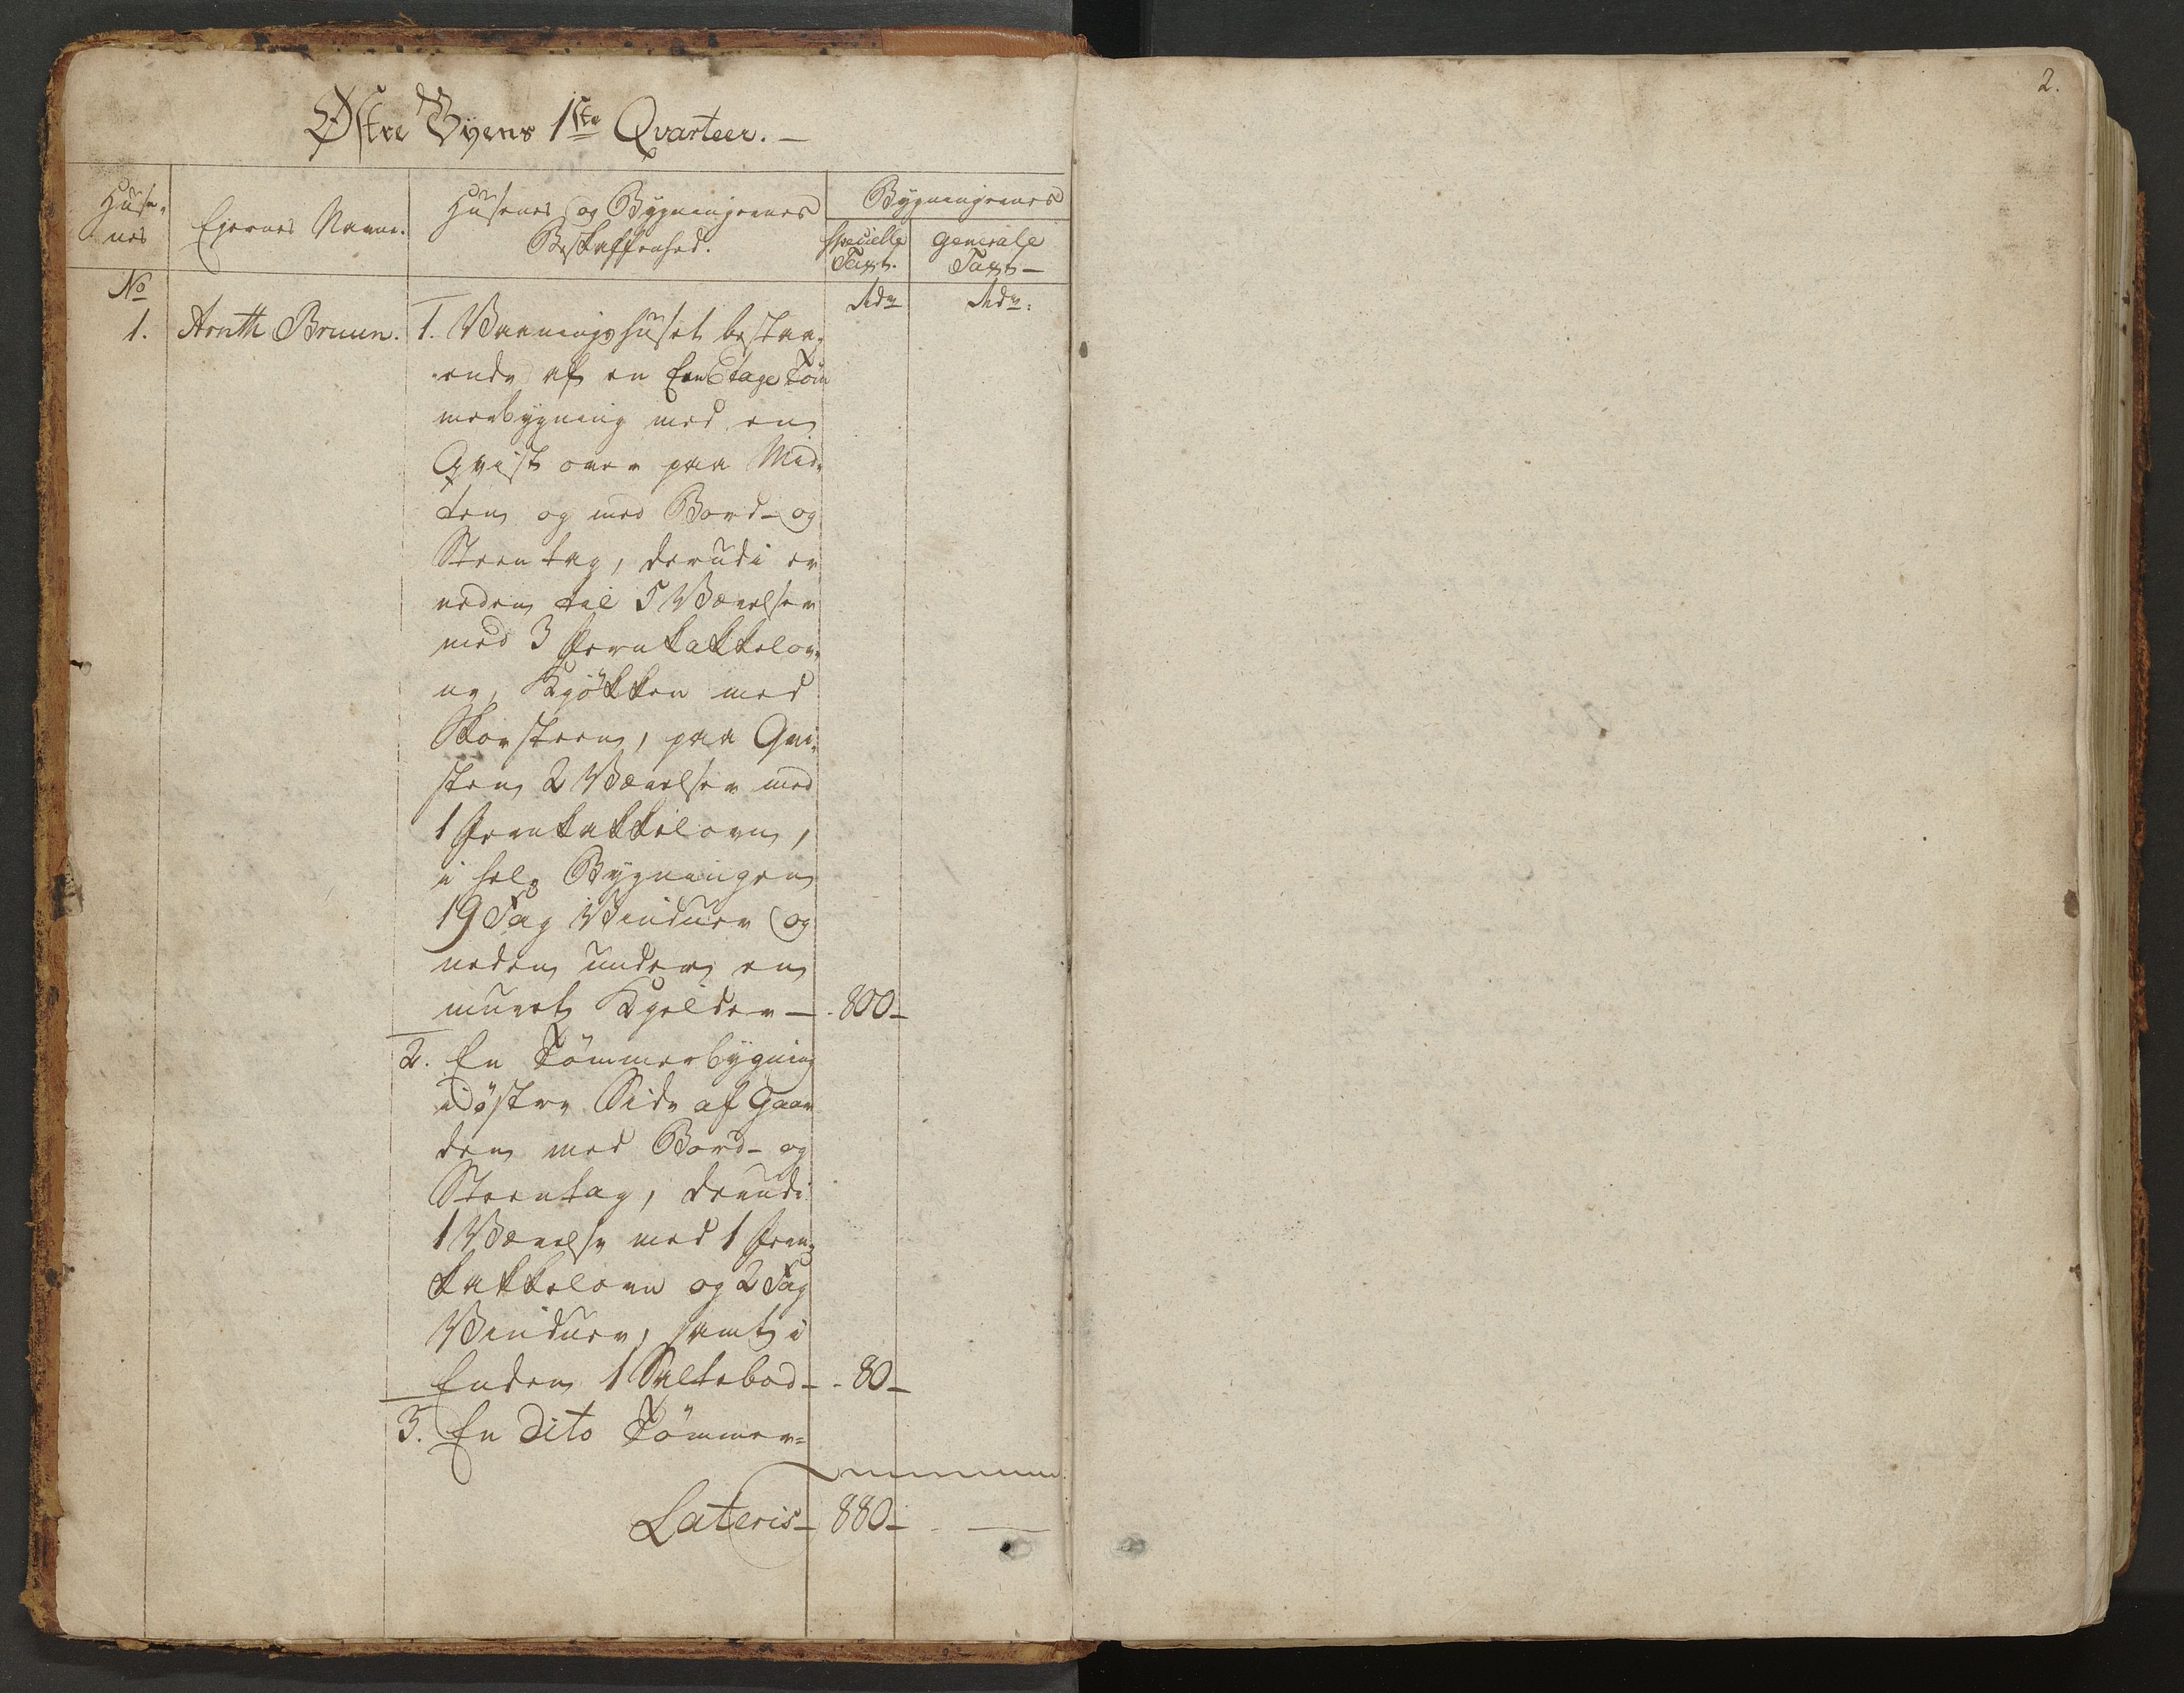 Østre Byens 1ste Qvarteer. —
2.
Huse-
nes
Ejernes Navne.
Husenes og Bygningernes
Beskaffenhed.
Bygningernes
specielle
Taxt.
generale
Taxt —
No
Rdr
Rdr:
1. Arnth Bruun. 1. Vaaningshuset bestaa-
ende af en Een Etage Töm
merbygning med en
Qvist over paa Mid-
ten og med Bord- og
Steentag, derudi er
neden til 5 Værelser
med 3 Jernkakkelov-
ne, Kjökken med
Skorsteen, paa Qvi-
sten 2 Værelser med
1 Jernkakkelovn,
i hele Bygningen
19 Fag Vinduer og
neden under en
muret Kjelder — 800 —
2. En Tömmerbygning
i östre Side af Gaar
den med Bord- og
Steentag, derudi
1 Værelse med 1 Jern-
kakkelovn og 2 Fag
Vinduer, samt i
Enden 1 Saltebod — 80 —
3. En dito Tömmer=
Lateris — 880 — —